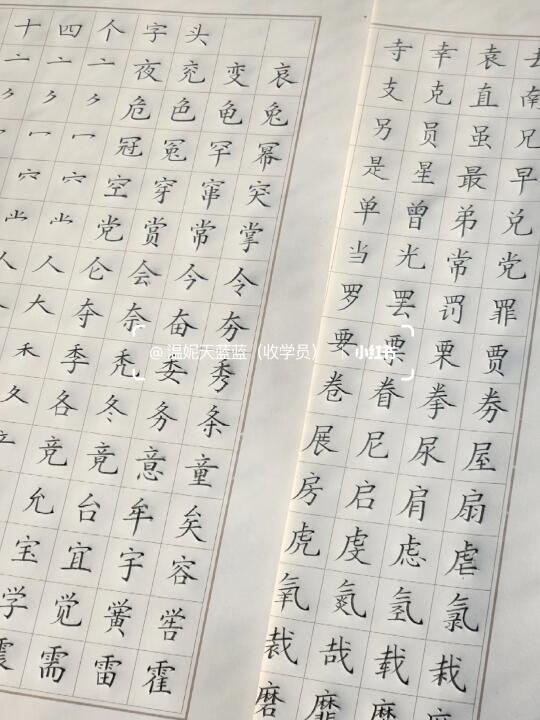 十四个字头
亠亠夜兖变哀
⺈⺈⺈危色龟兔
冖冖冠冤罕幂
宀宀空穿窜突
⺌⺌党赏常掌
人人仑会今令
大夺奈奋夯
禾季秃委秀
夂各冬务条
竞竟意童
允台牟矣
宝宜宇容
学觉黉喾
震需雷霍
寺幸袁去
支克直南
另员虽兄
是星最早
单曾弟兑
当光常党
罗罢罚罪
要票栗贾
卷眷拳券
展尼尿屋
房启肩扇
虎虔虑虐
氧氮氢氯
裁哉载栽
磨靡摩
@温妮天蓝蓝（收学员） 小红书